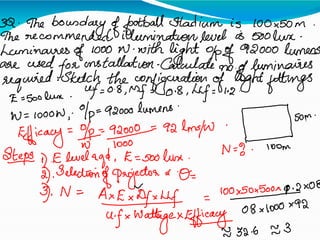 Q2. The boundary of football Stadium is 100x50m.
The recommended illumination level is 500 lux.
Luminaires of 1000 W with light o/p of 92000 lumens
are used for installation. Calculate no of luminaires
required. Sketch the configuration of light fittings
E = 500 lux. uf 0.8, Mf = 0.8, Llf = 1.2
W = 1000W, o/p = 92000 lumens.
Efficacy = o/p / W = 92000 / 1000 = 92 lms/W
50m.
N = ?
100m
Steps 1) E level reqd, E = 500 lux.
2) Selection of projector & θ =
3) N = A x E x Df x Llf / u.f x Wattage x Efficacy = 100x50x500x 0.2x08 / 08x1000x92
≈ 32.6 ≈ 3